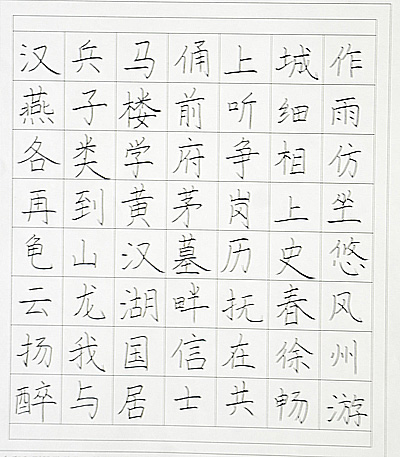 汉兵马俑上城作
燕子楼前听细雨
各类学府争相仿
再到黄茅岗上坐
龟山汉墓历史悠
云龙湖畔抚春风
扬我国信在徐州
醉与居士共畅游